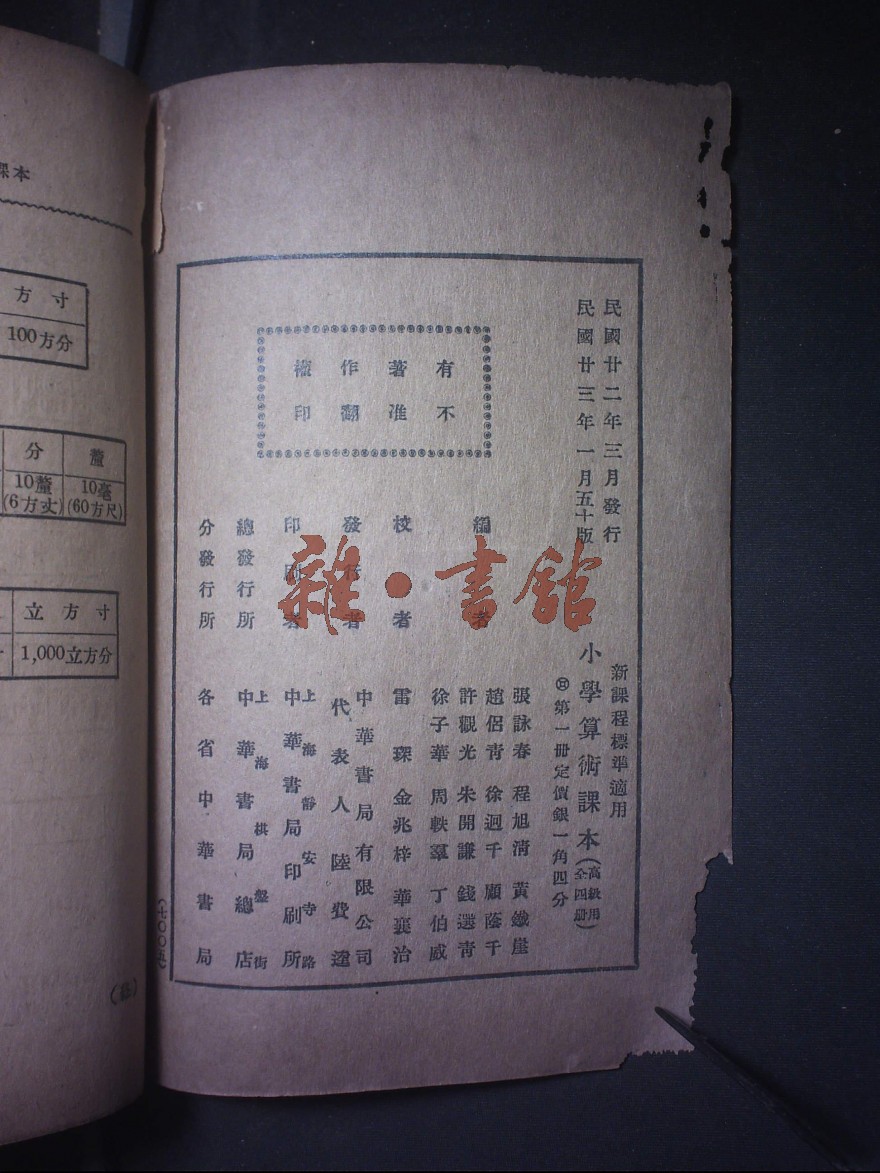 民國廿二年三月發行
民國廿三年一月五十版
新課程標準適用
小學算術課本(高級用全四冊)
第一冊定價銀一角四分
有著作權
不准翻印
編者
張詠春 程旭清 黃鐵崖
趙侶青 徐迥千 顧蔭千
許觀光 朱開謙 錢選青
徐子華 周軼羣 丁伯威
校者
雷琛 金兆梓 華襄治
發行者
中華書局有限公司
代表人 陸費逵
印刷者
上海靜安寺路
中華書局印刷所
總發行所
上海棋盤街
中華書局總店
分發行所
各省中華書局
雜·書館
課本
方寸
100方分
分 釐
10釐 10毫
(6方丈) (60方尺)
立方寸
1,000立方分